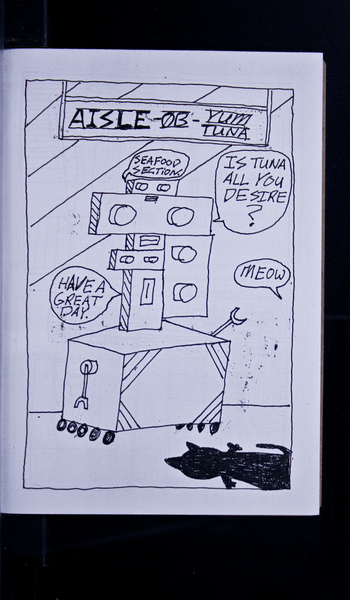 AISLE-ØB-YUM
TUNA
SEAFOOD
SECTION
IS TUNA
ALL YOU
DESIRE
?
MEOW
HAVE A
GREAT
DAY.